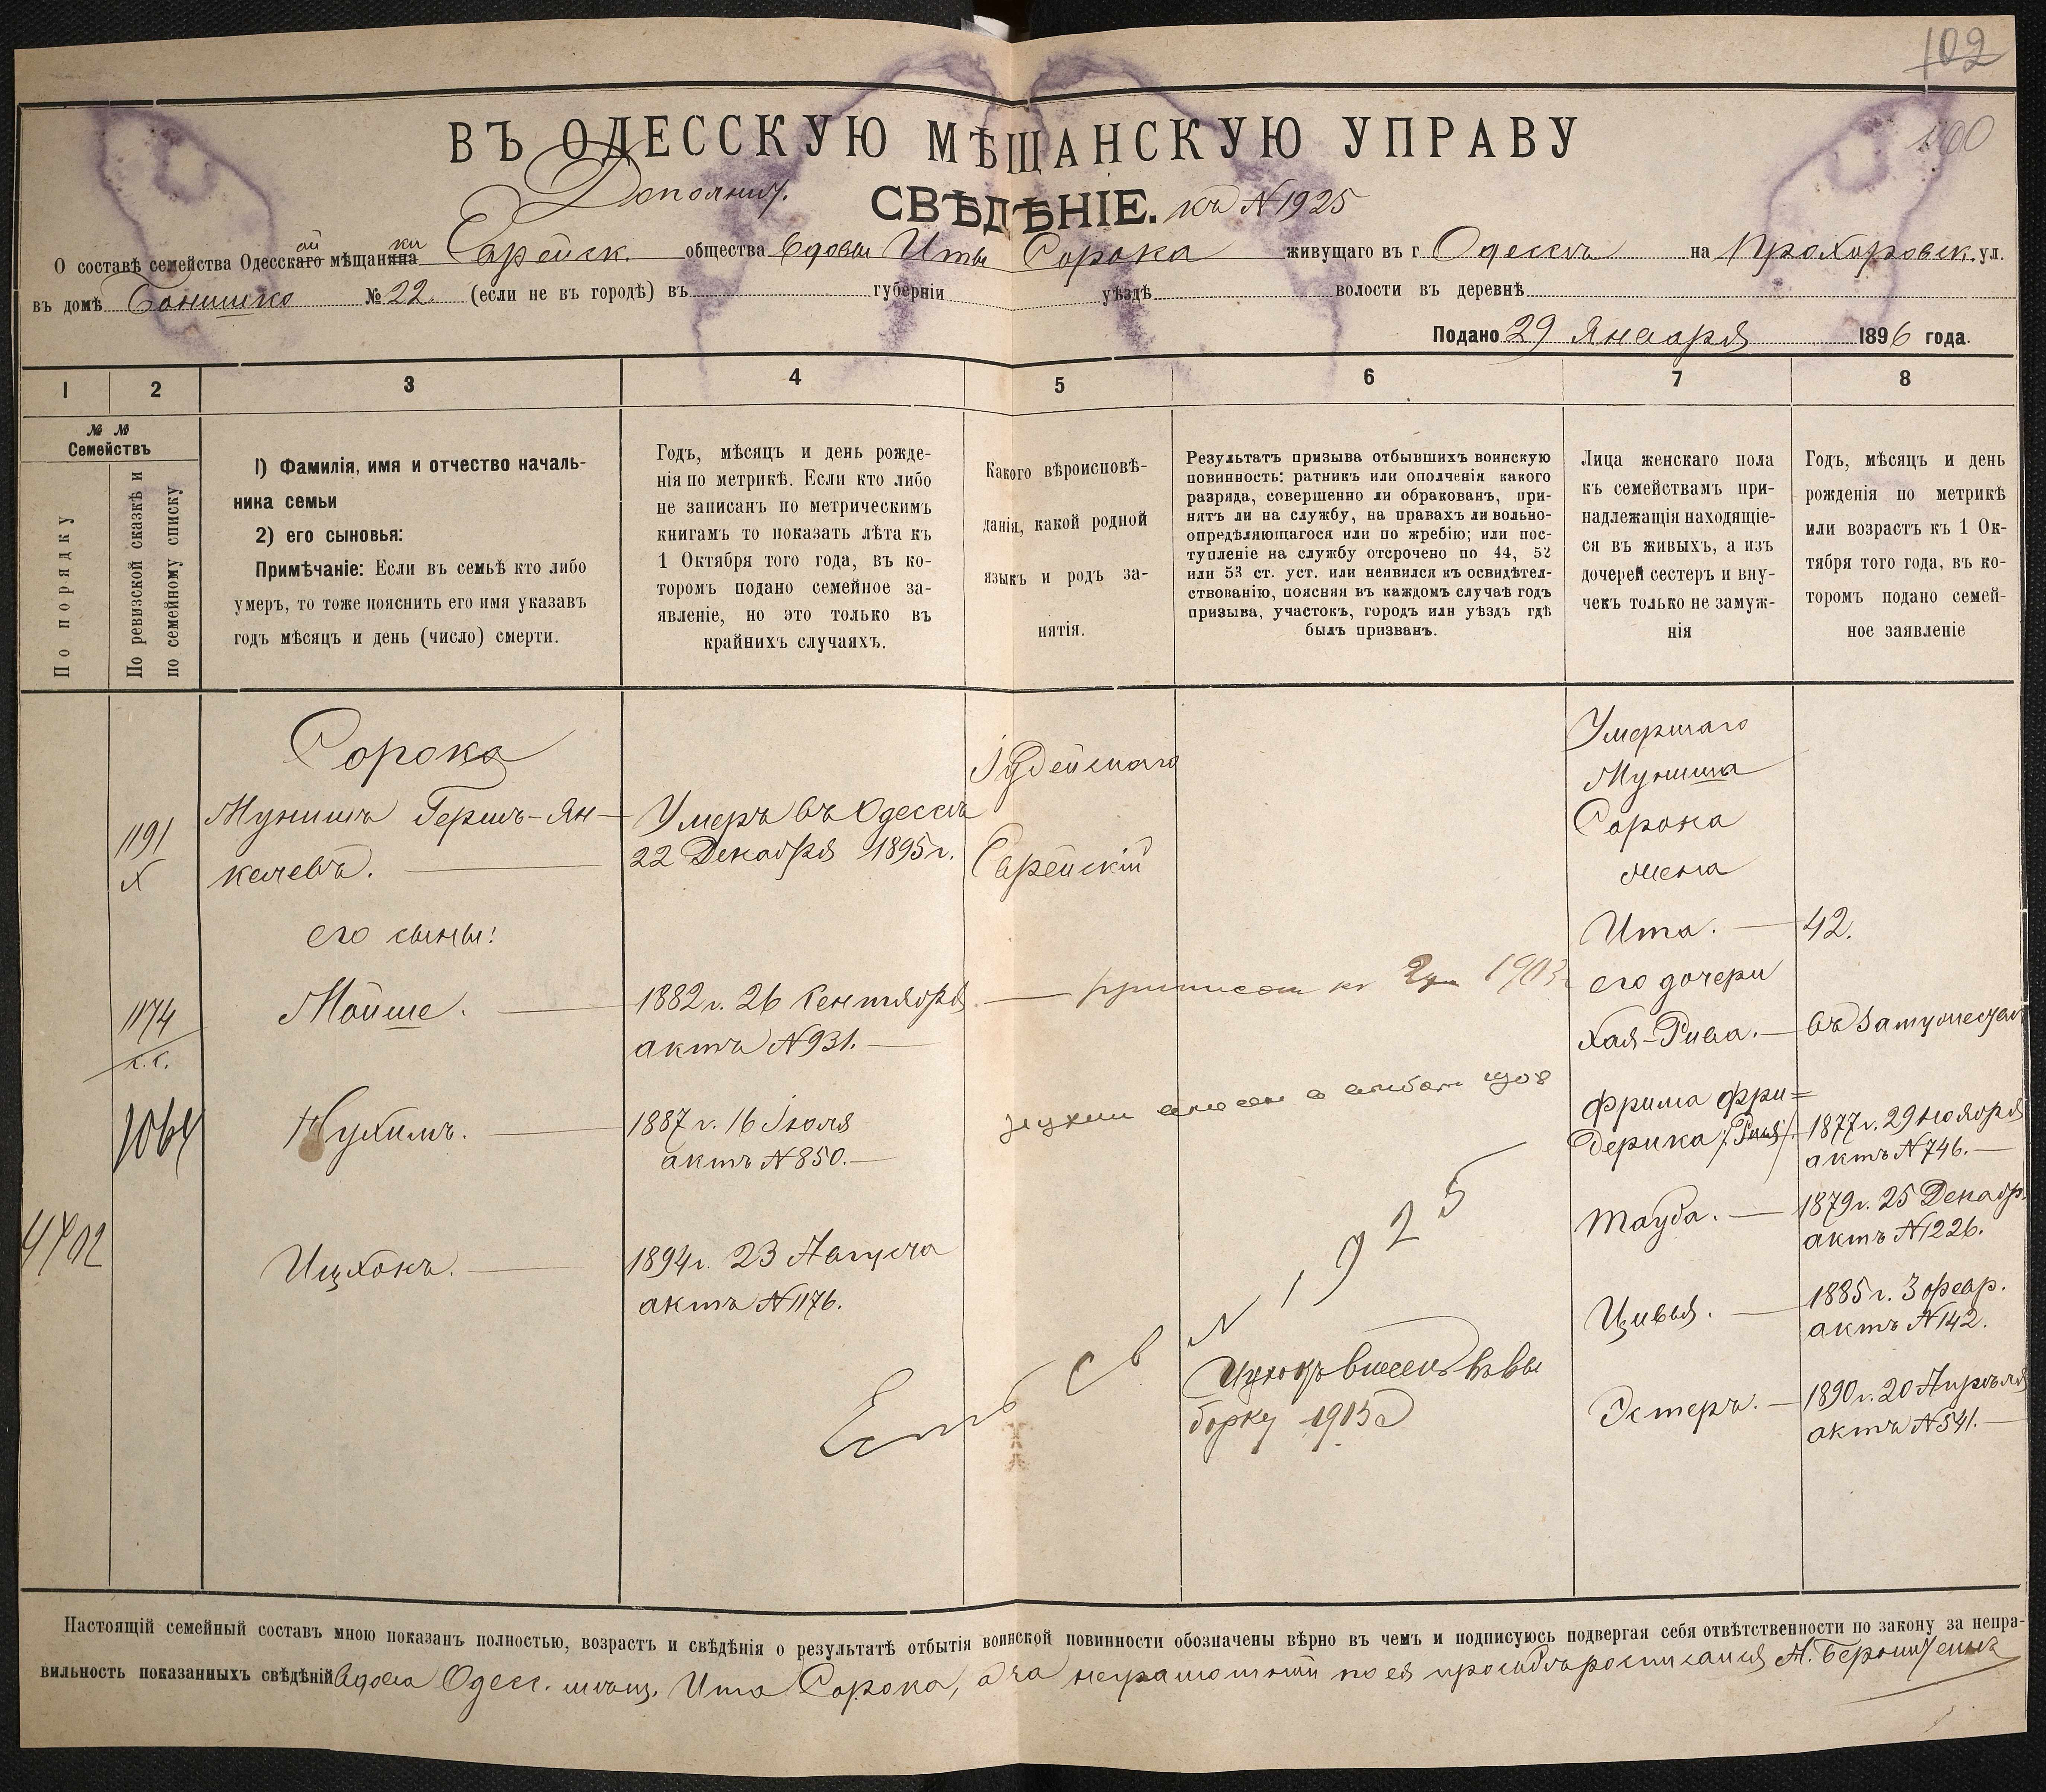 102
100
ВЪ ОДЕССКУЮ МѢЩАНСКУЮ УПРАВУ
Дополнит.
СВѢДѢНІЕ. къ N 1925
О составѣ семейства Одесскаго ой мѣщанина ки Еврейск. общества Вдовы Иты Сорока живущаго въ г Одессѣ на Прохоровск. ул.
въ домѣ Бонишко № 22. (если не въ городѣ) въ губерніи уѣздѣ волости въ деревнѣ
Подано 29 Января 1896 года.
1 2 3 4 5 6 7 8
№ №
Семействъ
По порядку
По ревизской сказкѣ и
по семейному списку
1) Фамилія, имя и отчество началь-
ника семьи
2) его сыновья:
Примѣчаніе: Если въ семьѣ кто либо
умеръ, то тоже пояснить его имя указавъ
годъ мѣсяцъ и день (число) смерти.
Годъ, мѣсяцъ и день рожде-
нія по метрикѣ. Если кто либо
не записанъ по метрическимъ
книгамъ то показать лѣта къ
1 Октября того года, въ ко-
торомъ подано семейное за-
явленіе, но это только въ
крайнихъ случаяхъ.
Какого вѣроисповѣ-
данія, какой родной
языкъ и родъ за-
нятія.
Результатъ призыва отбывшихъ воинскую
повинность: ратникъ или ополченія какого
разряда, совершенно ли обракованъ, при-
нятъ ли на службу, на правахъ ли вольно-
опредѣляющагося или по жребію; или пос-
тупленіе на службу отсрочено по 44, 52
или 53 ст. уст. или неявился къ освидѣтел-
ствованію, поясняя въ каждомъ случаѣ годъ
призыва, участокъ, городъ или уѣздъ гдѣ
былъ призванъ.
Лица женскаго пола
къ семействамъ при-
надлежащія находящіе-
ся въ живыхъ, а изъ
дочерей сестеръ и вну-
чекъ только не замуж-
нія
Годъ, мѣсяцъ и день
рожденія по метрикѣ
или возрастъ къ 1 Ок-
тября того года, въ ко-
торомъ подано семей-
ное заявленіе
Сорока
1191
х
Мунишъ Гершъ-Ян-
келевъ.
Умеръ въ Одессѣ
22 Декабря 1895 г.
Іудейскаго
Еврейскій
его сыны:
1174
с.с.
Мойше.
1882 г. 26 Сентября
актъ N 931.
приписан к 1903
1064
Нухимъ.
1887 г. 16 Іюля
актъ N 850.
Нухим
4402
Ицхокъ.
1894 г. 23 Августа
актъ N 1176.
Есть св N 1925
Ицхокъ внесенъ въ вы
борку 1913 г
Умершаго
Муниша
Сорока
жена
Ита. 42.
его дочери
Хая-Рива. въ замужествѣ
Фрима Фри=
дерика /Рися/. 1877 г. 29 ноября
актъ N 746.
Тауба. 1879 г. 25 Декабр.
актъ N 1226.
Цивья. 1885 г. 3 февр.
актъ N 142.
Эстеръ. 1890 г. 20 Апрѣля
актъ N 541.
Настоящій семейный составъ мною показанъ полностью, возрастъ и свѣдѣнія о результатѣ отбытія воинской повинности обозначены вѣрно въ чемъ и подписуюсь подвергая себя отвѣтственности по закону за непра-
вильность показанныхъ свѣдѣній Вдова Одесс. мѣщ. Ита Сорока, а за неграмотной по ея просьбѣ росписался